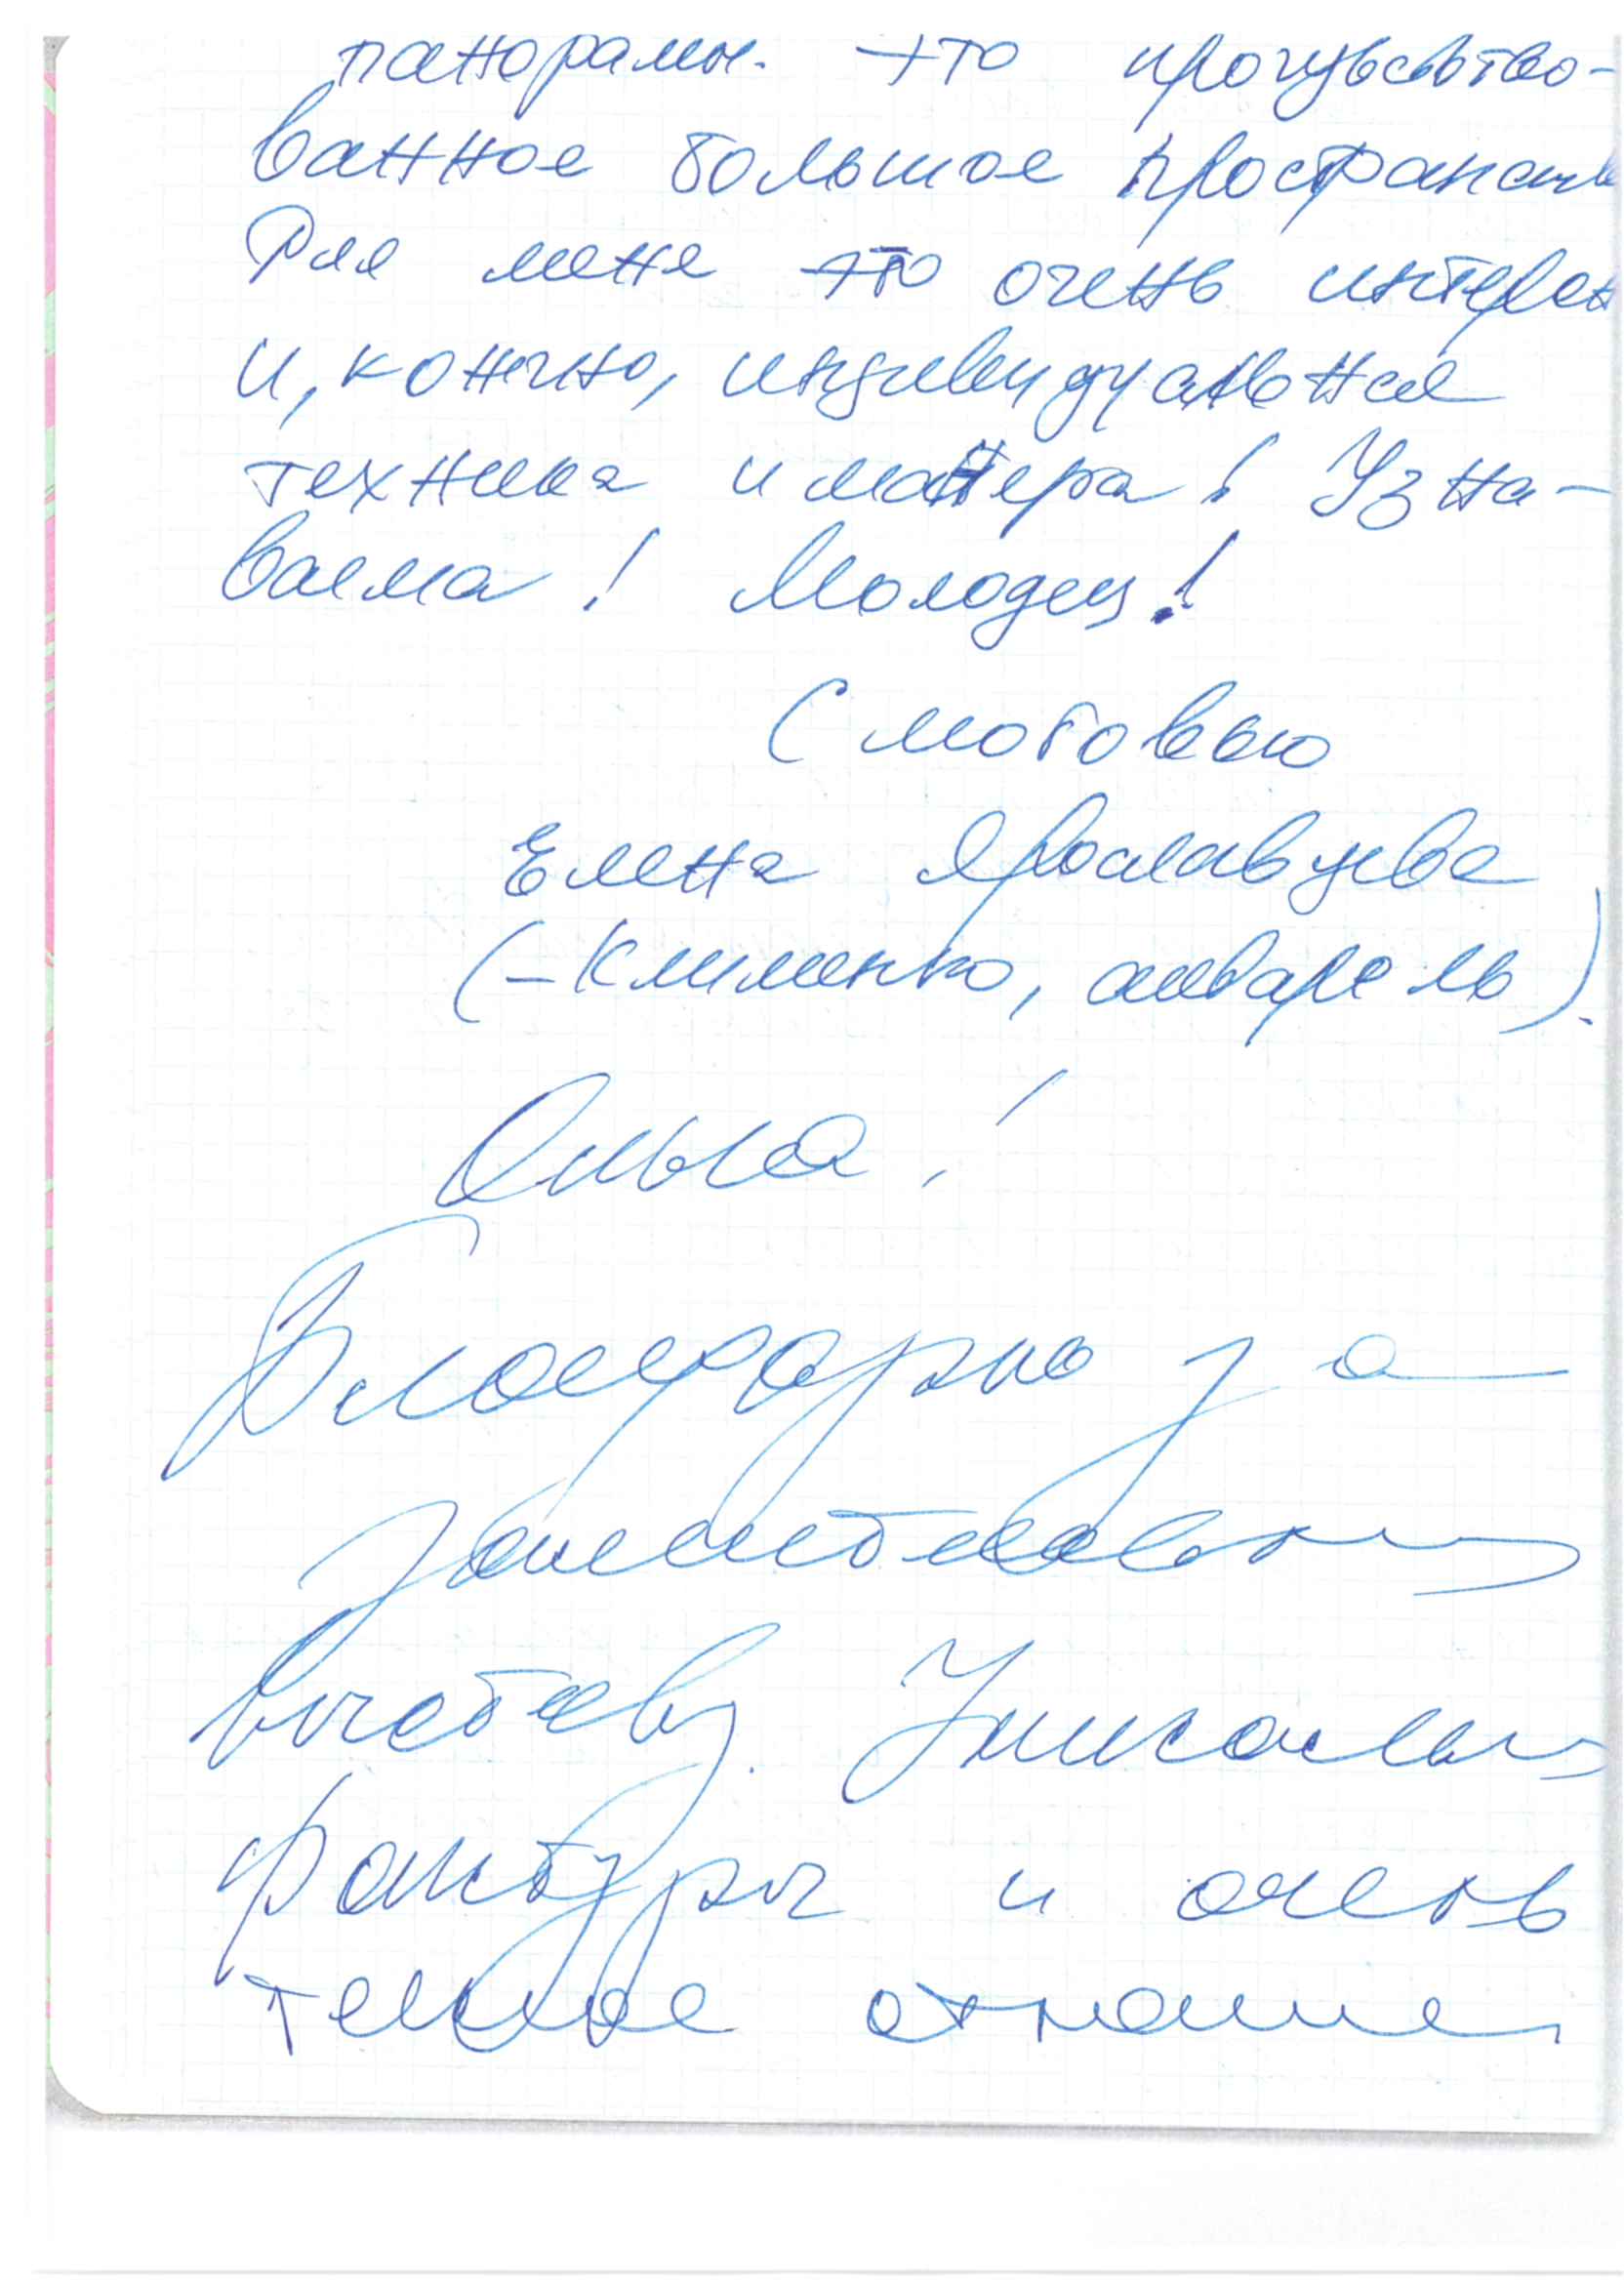 панорамы. Это прочувство-
ванное большое пространств
Для меня это очень интересн
и, конечно, индивидуальная
техника и манера! Узна-
ваема! Молодец!
С любовью
Елена Ярославцева
(-Клименко, акварель).
Ольга!
Благодарю за
замечательную
выставку. Уникальны
фактуры и очень
теплое отноше